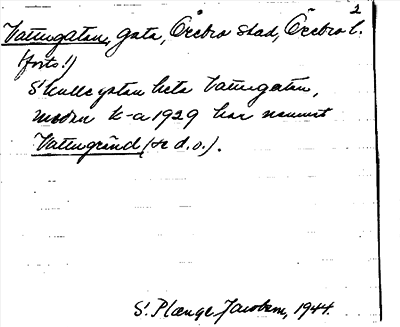 2
Vattugatan, gata, Örebro stad, Örebro l.
(forts.!)
Skulle gatan heta Vattugatan,
medan k-a 1929 har namnet
Vattugränd (se d.o.).
S. Plænge Jacobson, 1944.